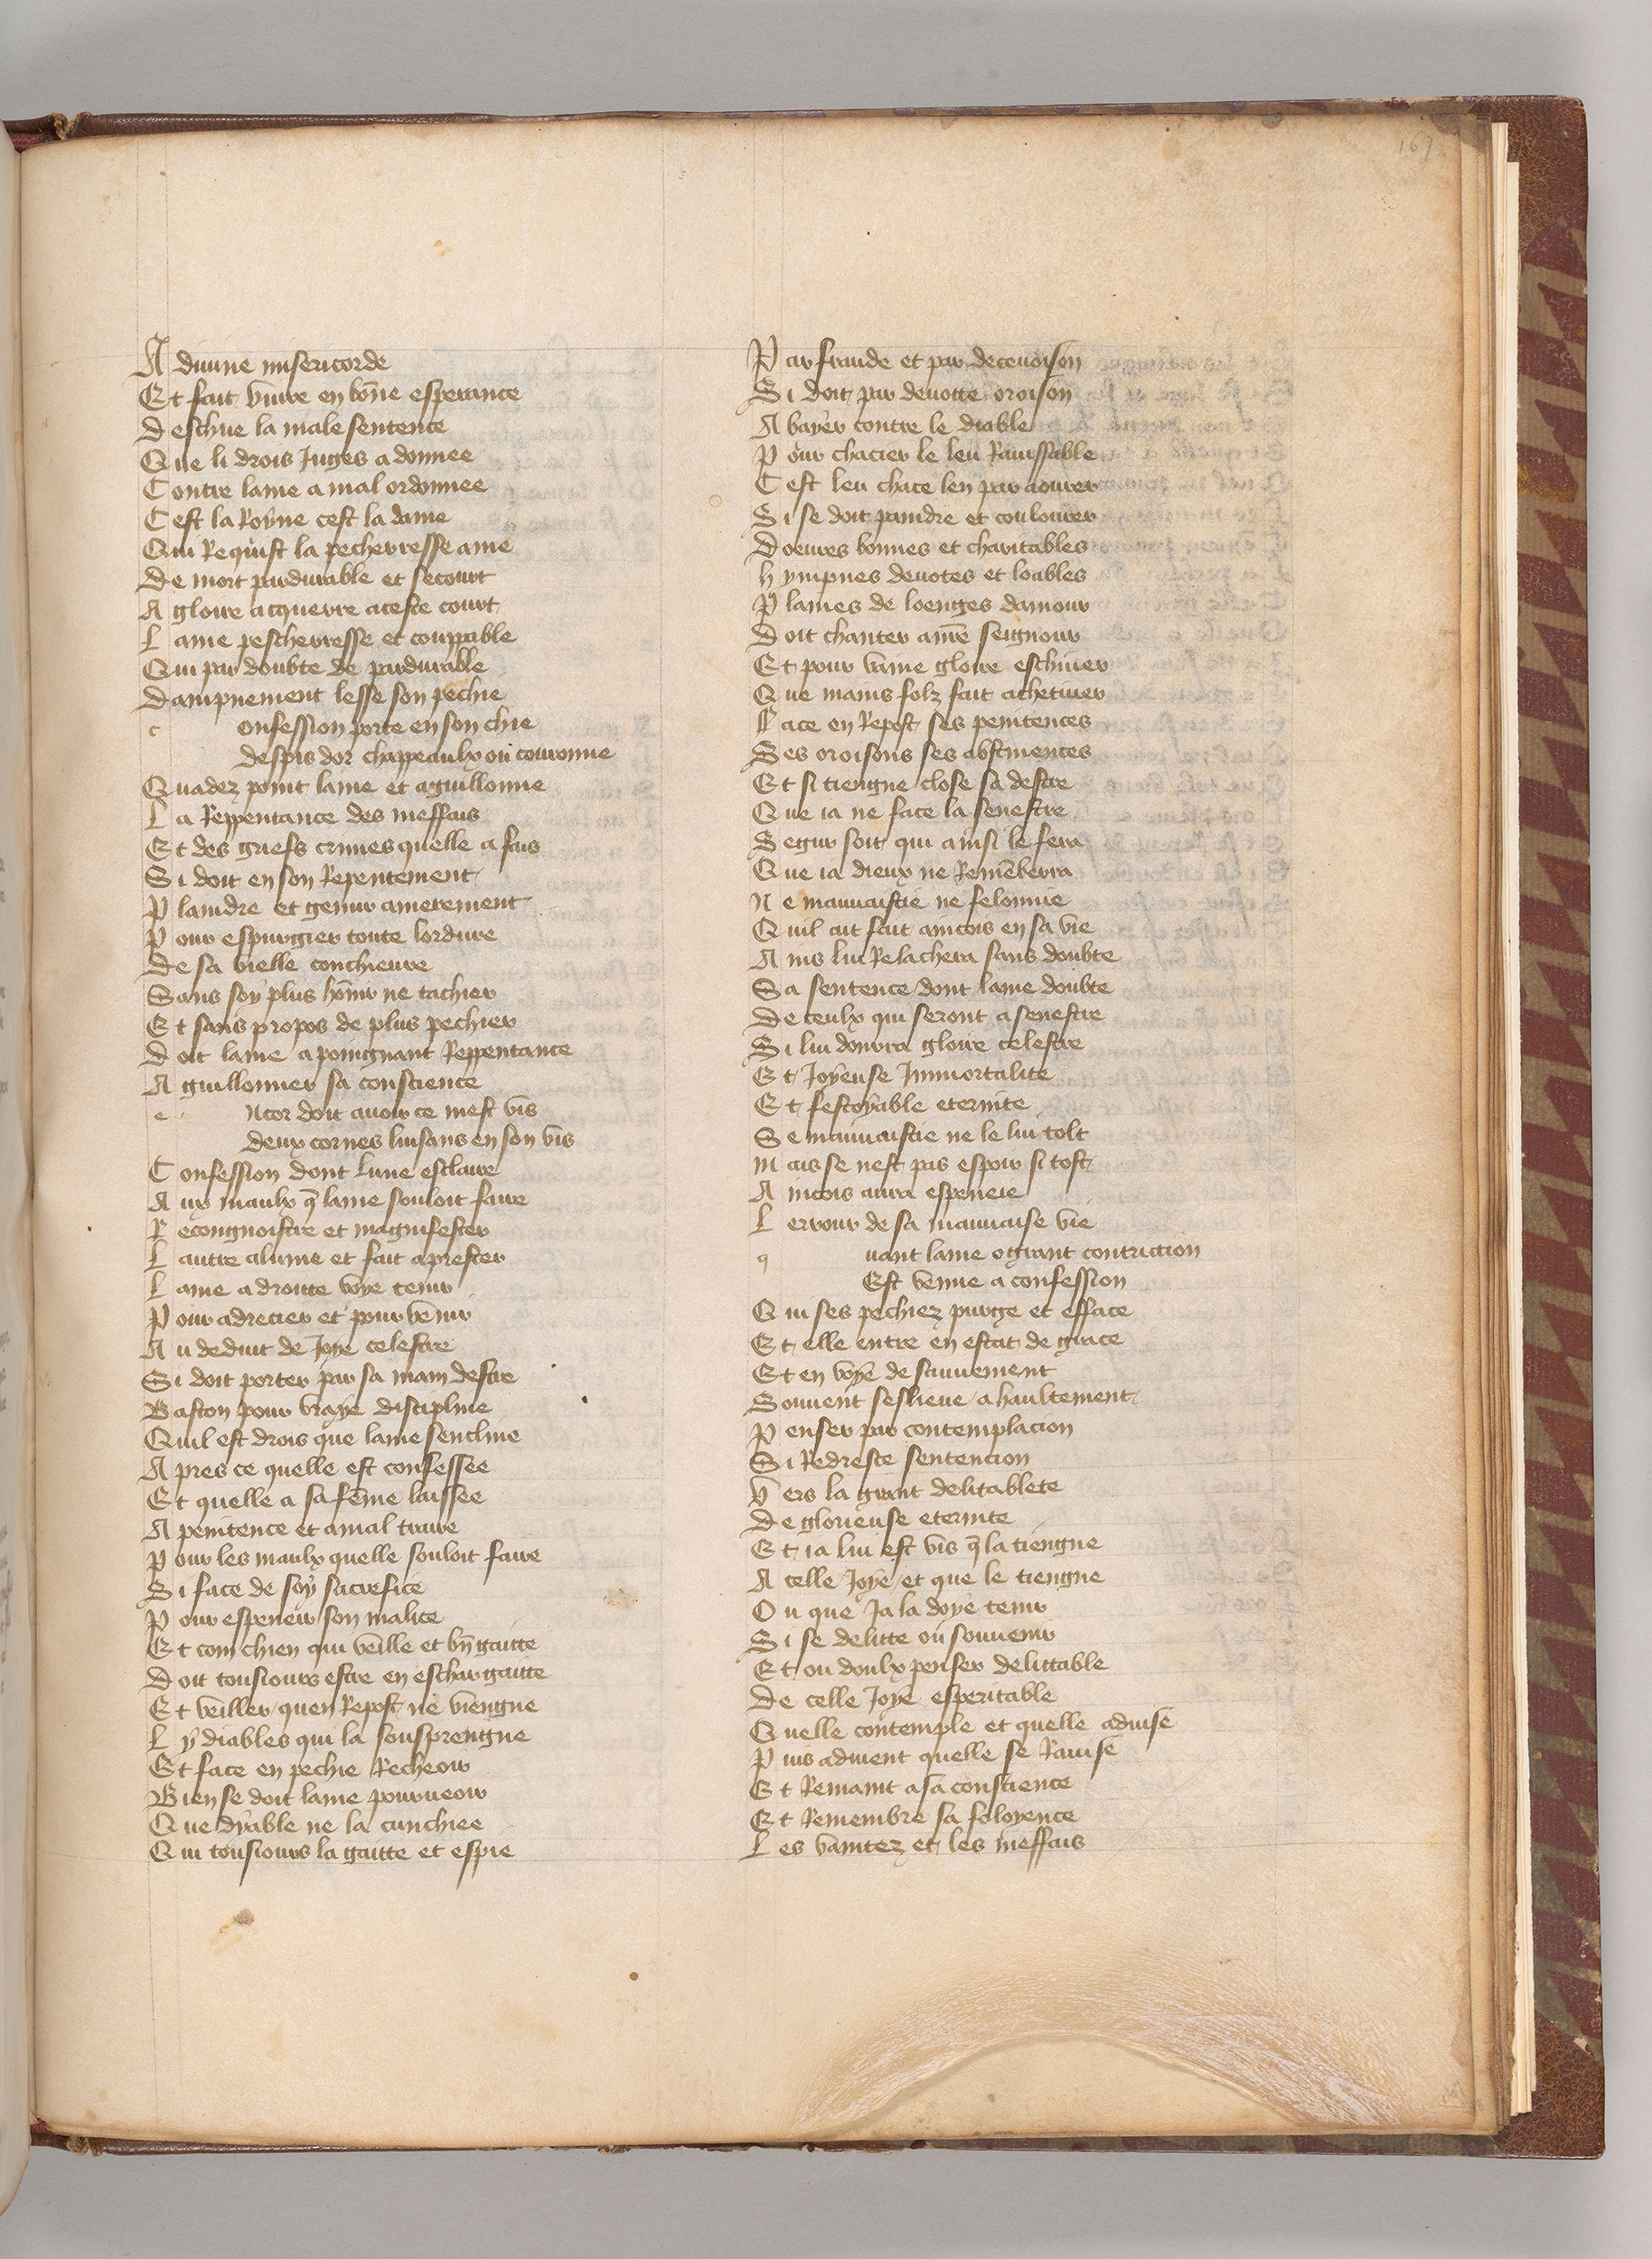 167
A diuine misericorde
Et fait viure en bōne esperance
Deschue la male sentence
Que li drois Juges a donnee
Contre lame a mal ordonnee
Cest la Royne cest la dame
Qui Requist la pecherresse ame
De mort pardurable et secourt
A gloire acquerre aceste court
Lame pescherresse et couppable
Qui par doubte de pardurable
Dampnement lesse son pechie
c onfession porte en son chie
despis dor chappeaulx ou couronne
Quadez point lame et aguillonne
La Reppentance des meffais
Et des griefs crimes quelle a fais
Si doit en son Repentement
Plaindre et gemir amerement
Pour espurgier toute lordure
De sa vielle conchieure
Sans soy plus hōnir ne tachier
Et sans propos de plus pechier
Doit lame a poingnant Reppentance
Aguillonner sa conscience
e ncor doit auoir ce mest vis
deux cornes luisans en son vis
Confession dont lune esclaire
Aux maulx q̄ lame souloit faire
Recongnoistre et magnifester
Lautre alume et fait aprester
Lame a droitte voye tenir
Pour adrecier et pour venir
Au deduit de Joye celestre
Si doit porter par sa main destre
Baston pour vraye discipline
Quil est drois que lame sencline
Apres ce quelle est confessee
Et quelle a sa fēme laissee
A penitence et a mal traire
Pour les maulx quelle souloit faire
Si face de soy sacrefice
Pour espeneir son malice
Et com chien qui veille et vn̄ gaitte
Doit tousiours estre en eschargaitte
Et veiller quen Repost ne viengne
Ly diables qui la sousprengne
Et face en pechie Recheoir
Bien se doit lame pourueoir
Que dyable ne la cunchiee
Qui tousiours la gaitte et espie
Par fraude et par deceuoison
Si doit par deuotte oroison
Abayer contre le diable
Pour chacier le leu Rauissable
Cest leu chace len par aourer
Si se doit paindre et coulourer
Doeures bonnes et charitables
hympnes deuotes et loables
Plames de loenges damour
Doit chanter a nr̄e seignour
Et pour vaine gloire eschiuer
Que mains folz fait achetiuer
Face en Repost ses penitences
Ses oroisons ses abstinences
Et si tiengne close sa destre
Que ia ne face la senestre
Segur soit qui ainsi le fera
Que ia dieux ne Remēberra
Ne mauuaistie ne felonnie
Quil ait fait aincois en sa vie
Ains lui Relachera sans doubte
Sa sentence dont lame doubte
De ceulx qui seront a senestre
Si lui donrra gloire celestre
Et Joyeuse Immortalite
Et festoyable eternite
Se mauuaistie ne le lui tolt
mais se nest pas espoir si tost
Aincois aura espeneie
Lerrour de sa mauuaise vie
q uant lame o grant contriction
Est venue a confession
Qui ses pechiez purge et efface
Et elle entre en estat de grace
Et en voye de sauuement
Souuent seslieue a haultement
Penser par contemplacion
Si Redresce sentencion
Vers la grant delitablete
De glorieuse eternite
Et ia lui est vis q̄ la tiengne
A celle Joye et que le tiengne
Ou que Ja la doye tenir
Si se delitte ou souuenir
Et ou doulx penser delittable
De celle Joye esperitable
Quelle contemple et quelle aduise
Puis aduient quelle se Rauise
Et Remaint a sa conscience
Et Remembre sa foloyence
Les vanitez et les meffais